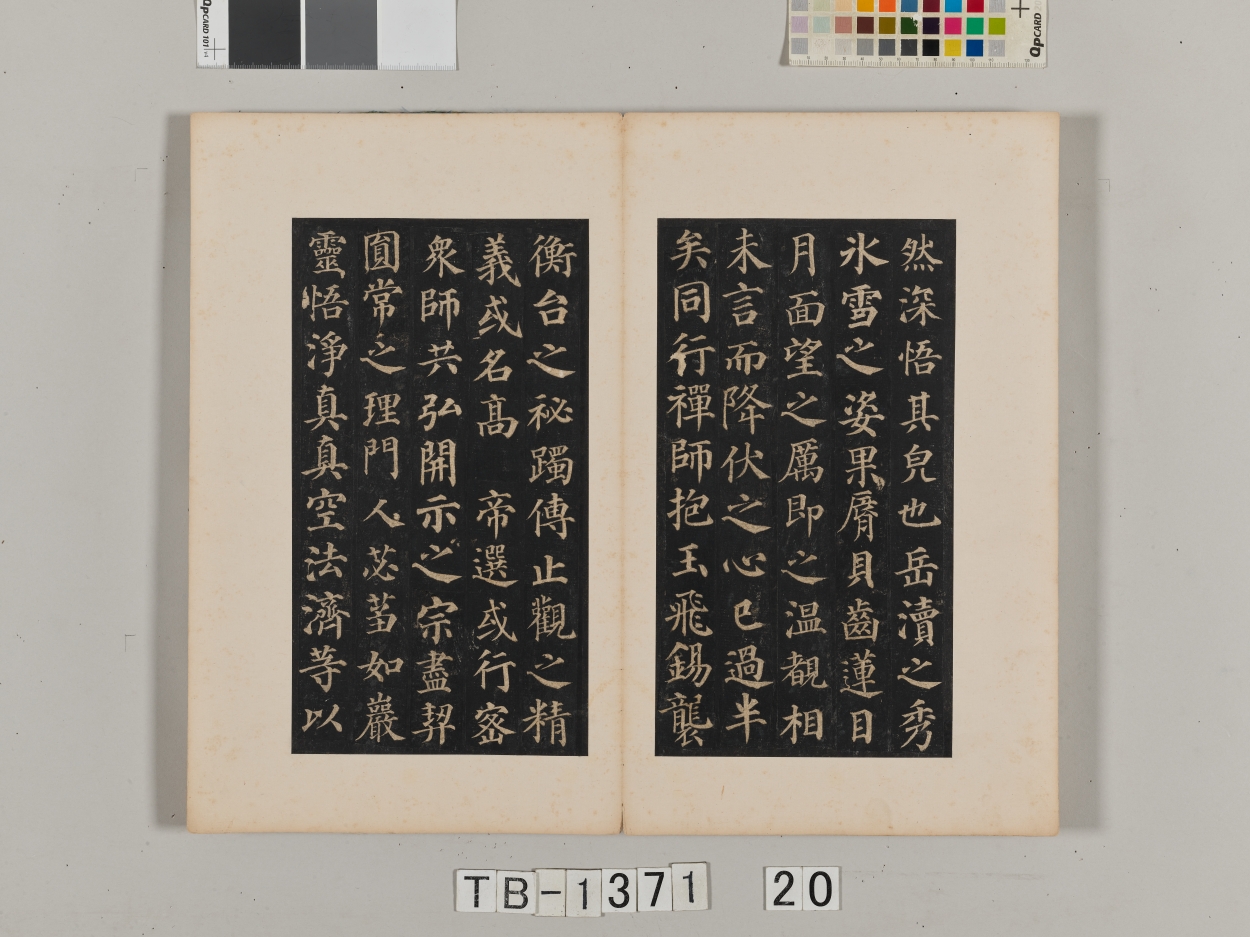 然深悟其皃也岳瀆之秀
氷雪之姿果脣貝齒蓮目
月面望之厲即之温覩相
未言而降伏之心已過半
矣同行禪師抱玉飛錫襲
衡台之祕躅傳止觀之精
義或名髙帝選或行密
衆師共弘開示之宗盡契
圎常之理門人苾蒭如巖
靈悟淨真真空法濟等以
QPCARD 101
QPCARD
TB-1371 20